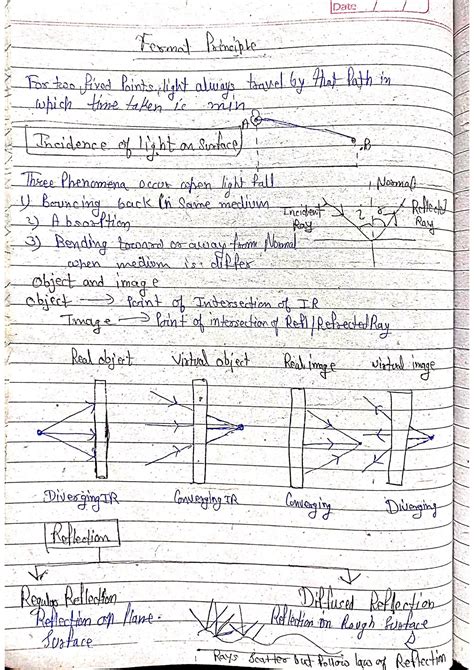 Date
Fermat Principle
For two fixed Points, light always travel by that Path in
which time taken is min
A
B
Incidence of light on Surface
Three Phenomena occur when light fall
1) Bouncing back in Same medium
2) Absorption
3) Bending toward or away from Normal
when medium is differ
Normal
Incident Ray
i
r
Reflected Ray
object and image
object → Point of Intersection of IR
Image → Point of intersection of Refl/Refracted Ray
Real object Virtual object Real image Virtual image
Diverging IR Converging IR Converging Diverging
Reflection
Regular Reflection Diffused Reflection
Reflection on Plane Reflection on Rough Surface
Surface
Rays Scatter but follow laws of Reflection